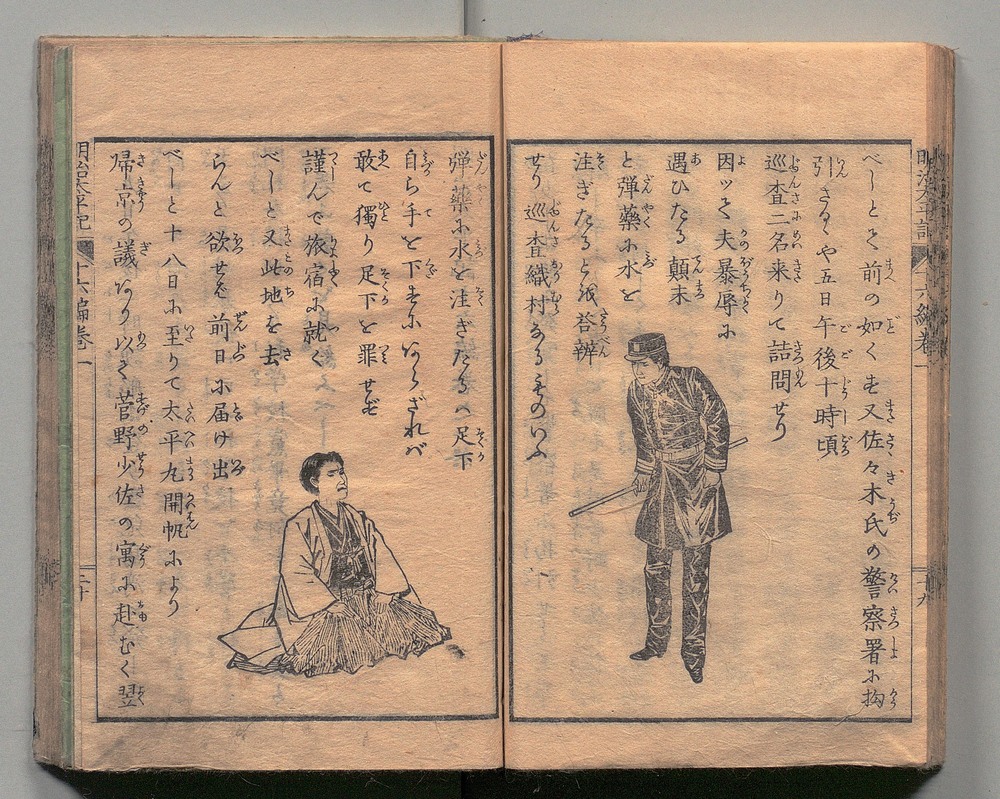 べしとて前の如くせ又佐々木氏の警察署に拘
引さるや五日午後十時頃
巡査二名来りて詰問せり
因ッて夫暴辱に
遇ひたる顛末
と弾藥に水を
注ぎたると答辨
せり巡査織村なるものいふ
明治太平記 十六編巻一
弾藥に水を注ぎたるハ足下
自ら手を下せにあらざれバ
敢て獨り足下を罪せず
謹んで旅宿に就く
べしと又此地を去
らんと欲せバ前日に届け出
べしと十八日に至りて太平丸開帆により
帰京の議あり以て菅野少佐の寓に赴むく翌
明治太平記 十六編巻一 二十